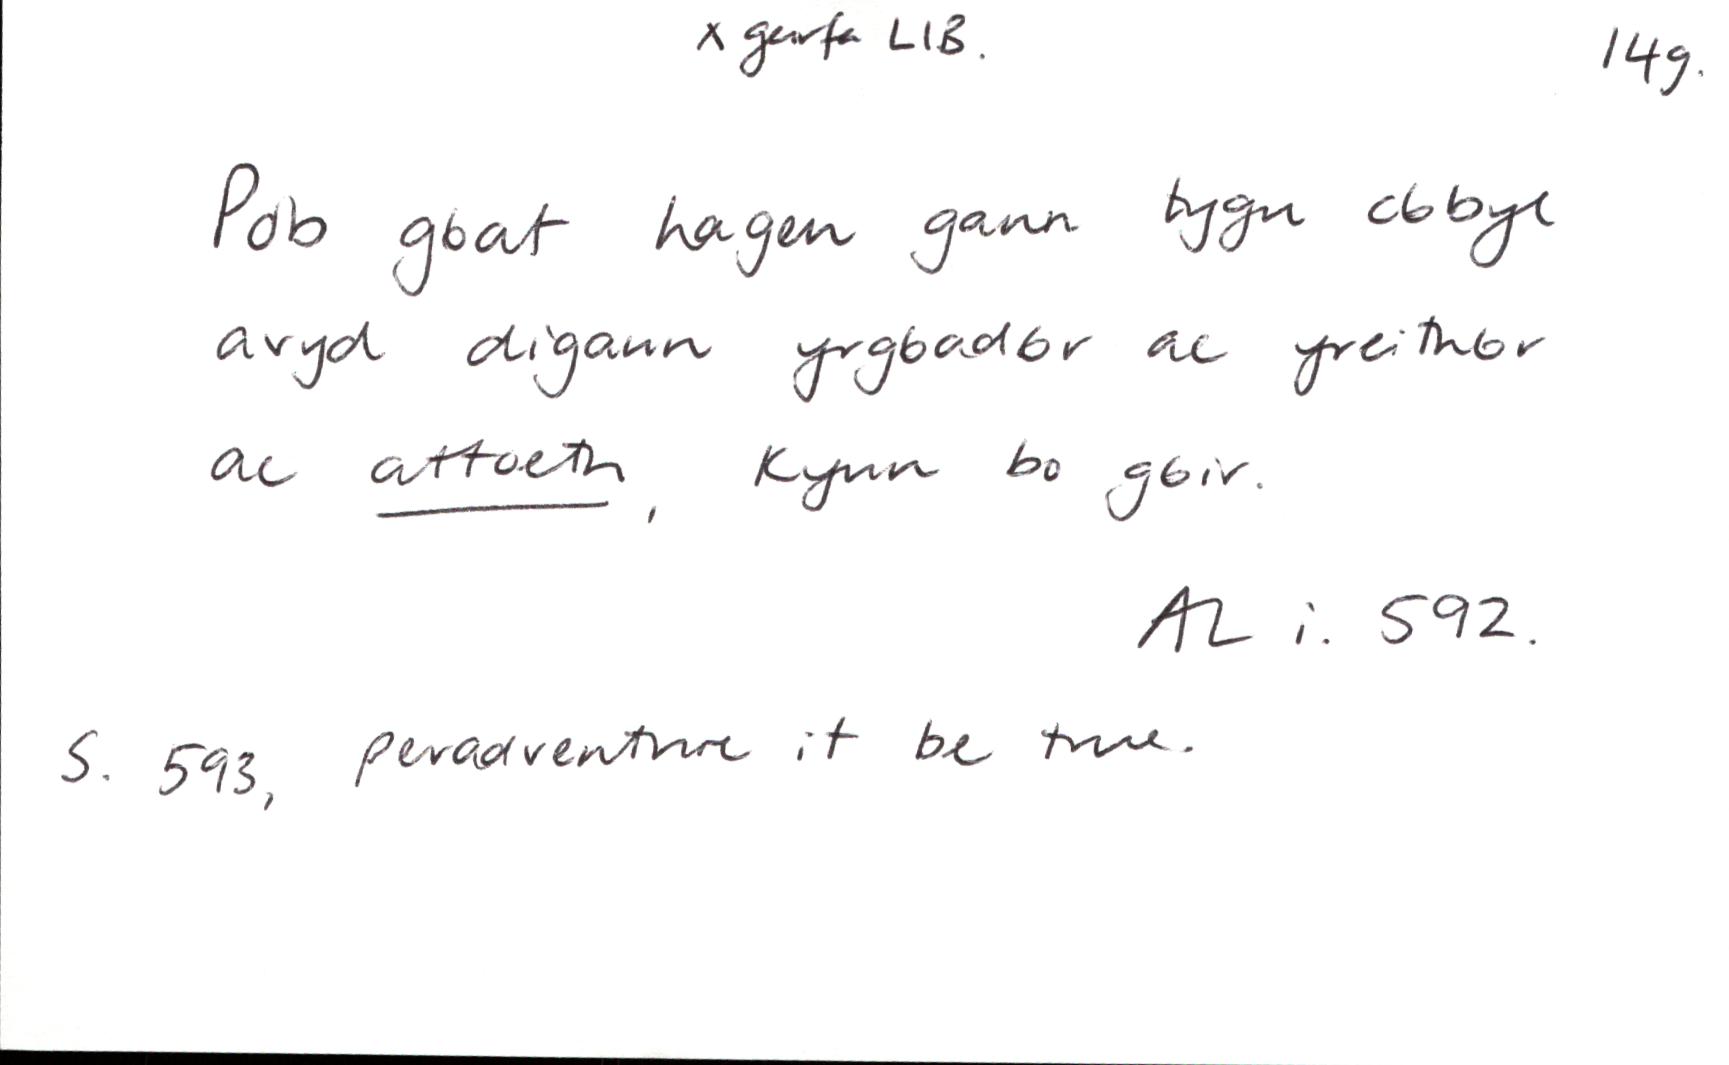 x geirfa LlB. 14g.
Pob gỽat hagen gann tygu cỽbyl
avyd digaun yrgỽadỽr ac yreithỽr
ac attoeth, kynn bo gỽir.
AL i. 592.
S. 593, peradventure it be true.